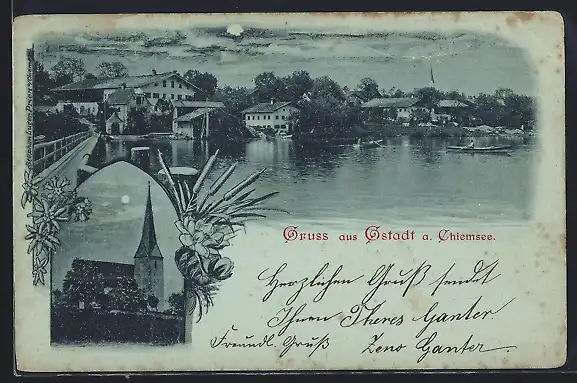 Gruss aus Gstadt a. Chiemsee.
Herzlichen Gruß sendet
Ihnen Theres Ganter.
Freundl. Gruß Zeno Ganter.